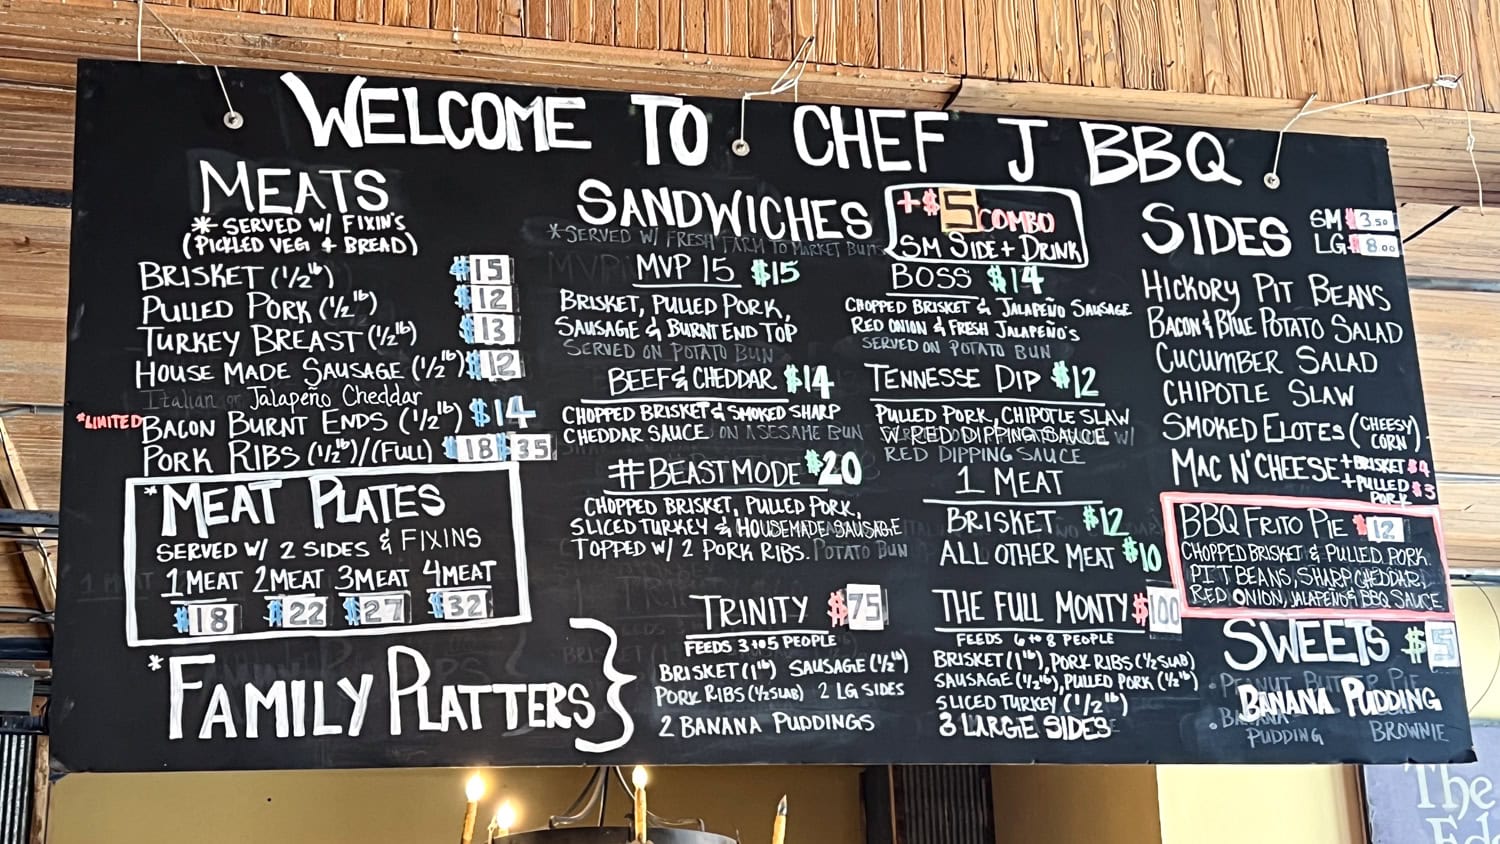 WELCOME TO CHEF J BBQ
MEATS
*SERVED W/ FIXIN'S
(PICKLED VEG & BREAD)
BRISKET (1/2 lb) $15
PULLED PORK (1/2 lb) $12
TURKEY BREAST (1/2 lb) $13
HOUSE MADE SAUSAGE (1/2 lb) $12
Italian or Jalapeño Cheddar
*LIMITED BACON BURNT ENDS (1/2 lb) $14
PORK RIBS (1/2 lb)/(FULL) $18 $35
*MEAT PLATES
SERVED W/ 2 SIDES & FIXINS
1 MEAT 2 MEAT 3 MEAT 4 MEAT
$18 $22 $27 $32
SANDWICHES
*SERVED W/ FRESH FARM TO MARKET BUNS
+$5 COMBO
SM SIDE + DRINK
MVP 15 $15
BRISKET, PULLED PORK,
SAUSAGE & BURNT END TOP
SERVED ON POTATO BUN
BEEF & CHEDDAR $14
CHOPPED BRISKET & SMOKED SHARP
CHEDDAR SAUCE ON A SESAME BUN
#BEASTMODE $20
CHOPPED BRISKET, PULLED PORK,
SLICED TURKEY & HOUSEMADE SAUSAGE
TOPPED W/ 2 PORK RIBS. POTATO BUN
BOSS $14
CHOPPED BRISKET & JALAPEÑO SAUSAGE
RED ONION & FRESH JALAPEÑO'S
SERVED ON POTATO BUN
TENNESSE DIP $12
PULLED PORK, CHIPOTLE SLAW
W/ RED DIPPING SAUCE W/
RED DIPPING SAUCE
1 MEAT
BRISKET $12
ALL OTHER MEAT $10
SIDES SM $3.50
LG $8.00
HICKORY PIT BEANS
BACON & BLUE POTATO SALAD
CUCUMBER SALAD
CHIPOTLE SLAW
SMOKED ELOTES (CHEESY CORN)
MAC N' CHEESE +BRISKET $4
+PULLED PORK $3
BBQ FRITO PIE $12
CHOPPED BRISKET & PULLED PORK
PIT BEANS, SHARP CHEDDAR,
RED ONION, JALAPEÑO & BBQ SAUCE
*FAMILY PLATTERS
TRINITY $75
FEEDS 3 to 5 PEOPLE
BRISKET (1 lb) SAUSAGE (1/2 lb)
PORK RIBS (1/2 SLAB) 2 LG SIDES
2 BANANA PUDDINGS
THE FULL MONTY $100
FEEDS 6 to 8 PEOPLE
BRISKET (1 lb), PORK RIBS (1/2 SLAB)
SAUSAGE (1/2 lb), PULLED PORK (1/2 lb)
SLICED TURKEY (1/2 lb)
3 LARGE SIDES
SWEETS $5
• PEANUT BUTTER PIE
BANANA PUDDING
• BANANA
PUDDING BROWNIE
The